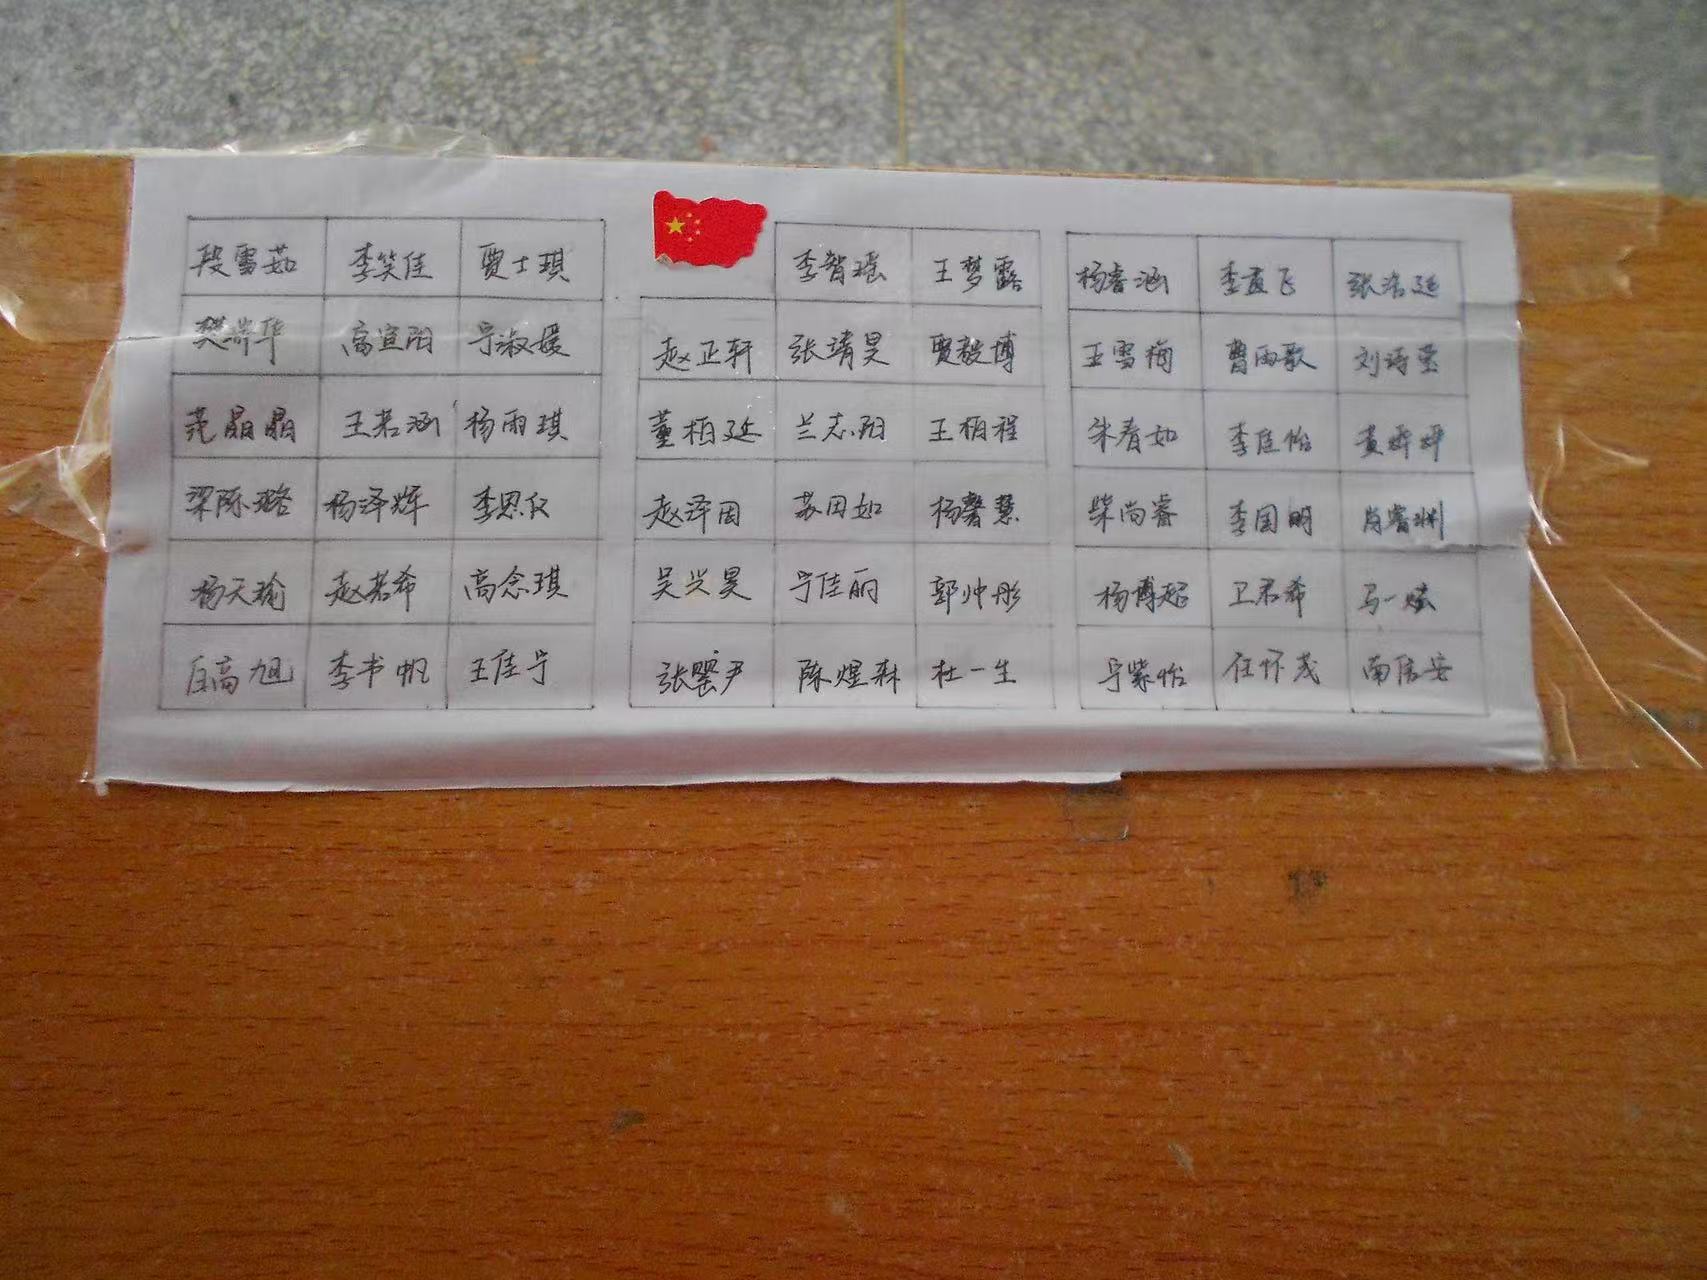 段雪茹 李笑佳 贾士琪 李智瑶 王梦露 杨睿涵 李孟飞 张浩延
樊 华 高宜阳 宁淑媛 赵正轩 张靖昊 贾毅博 王雪梅 曹雨歌 刘诗莹
范晶晶 王若涵 杨雨琪 董柏延 兰志阳 王柏程 朱春如 李佳怡 黄婷婷
梁陈璐 杨泽辉 李思仪 赵泽因 苏田如 杨馨慧 柴尚睿 李国明 肖睿渊
杨天瑜 赵若希 高念琪 吴兴昊 宁佳丽 郭帅彤 杨博超 卫君希 马一
白高旭 李书帆 王佳宁 张 尹 陈煜森 杜一生 宁紫怡 任怀茂 南信安